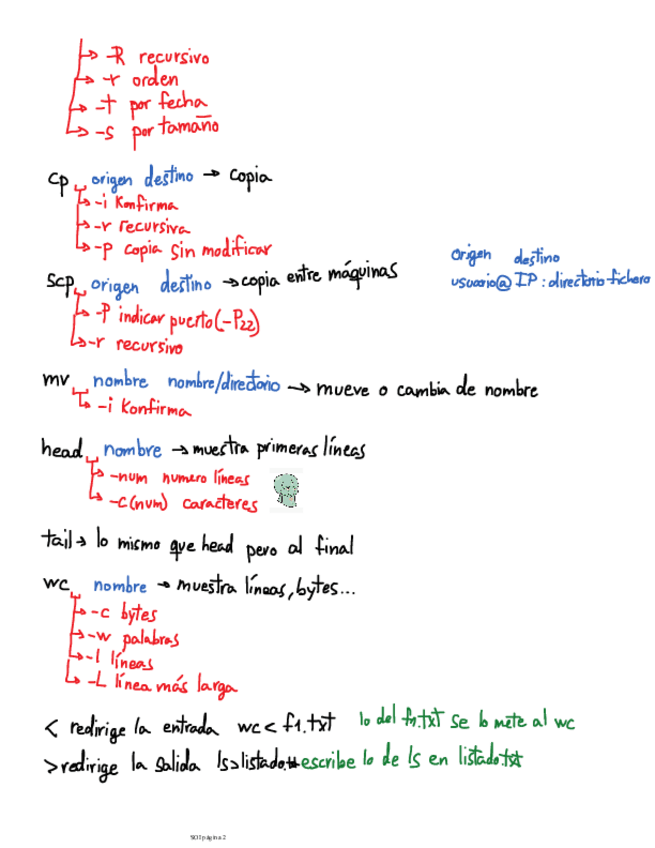 -R recursivo
-r orden
-t por fecha
-s por tamaño
cp origen destino → copia
-i Konfirma
-r recursiva
-p copia sin modificar
scp origen destino → copia entre máquinas
origen destino
usuario@IP:directorio fichero
-P indicar puerto (-P22)
-r recursivo
mv nombre nombre/directorio → mueve o cambia de nombre
-i Konfirma
head nombre → muestra primeras líneas
-num numero líneas
-c(num) caracteres
tail → lo mismo que head pero al final
wc nombre → muestra líneas, bytes...
-c bytes
-w palabras
-l líneas
-L línea más larga
< redirige la entrada wc < f1.txt lo del f1.txt se lo mete al wc
> redirige la salida ls>listado. escribe lo de ls en listado.txt
SOI página 2